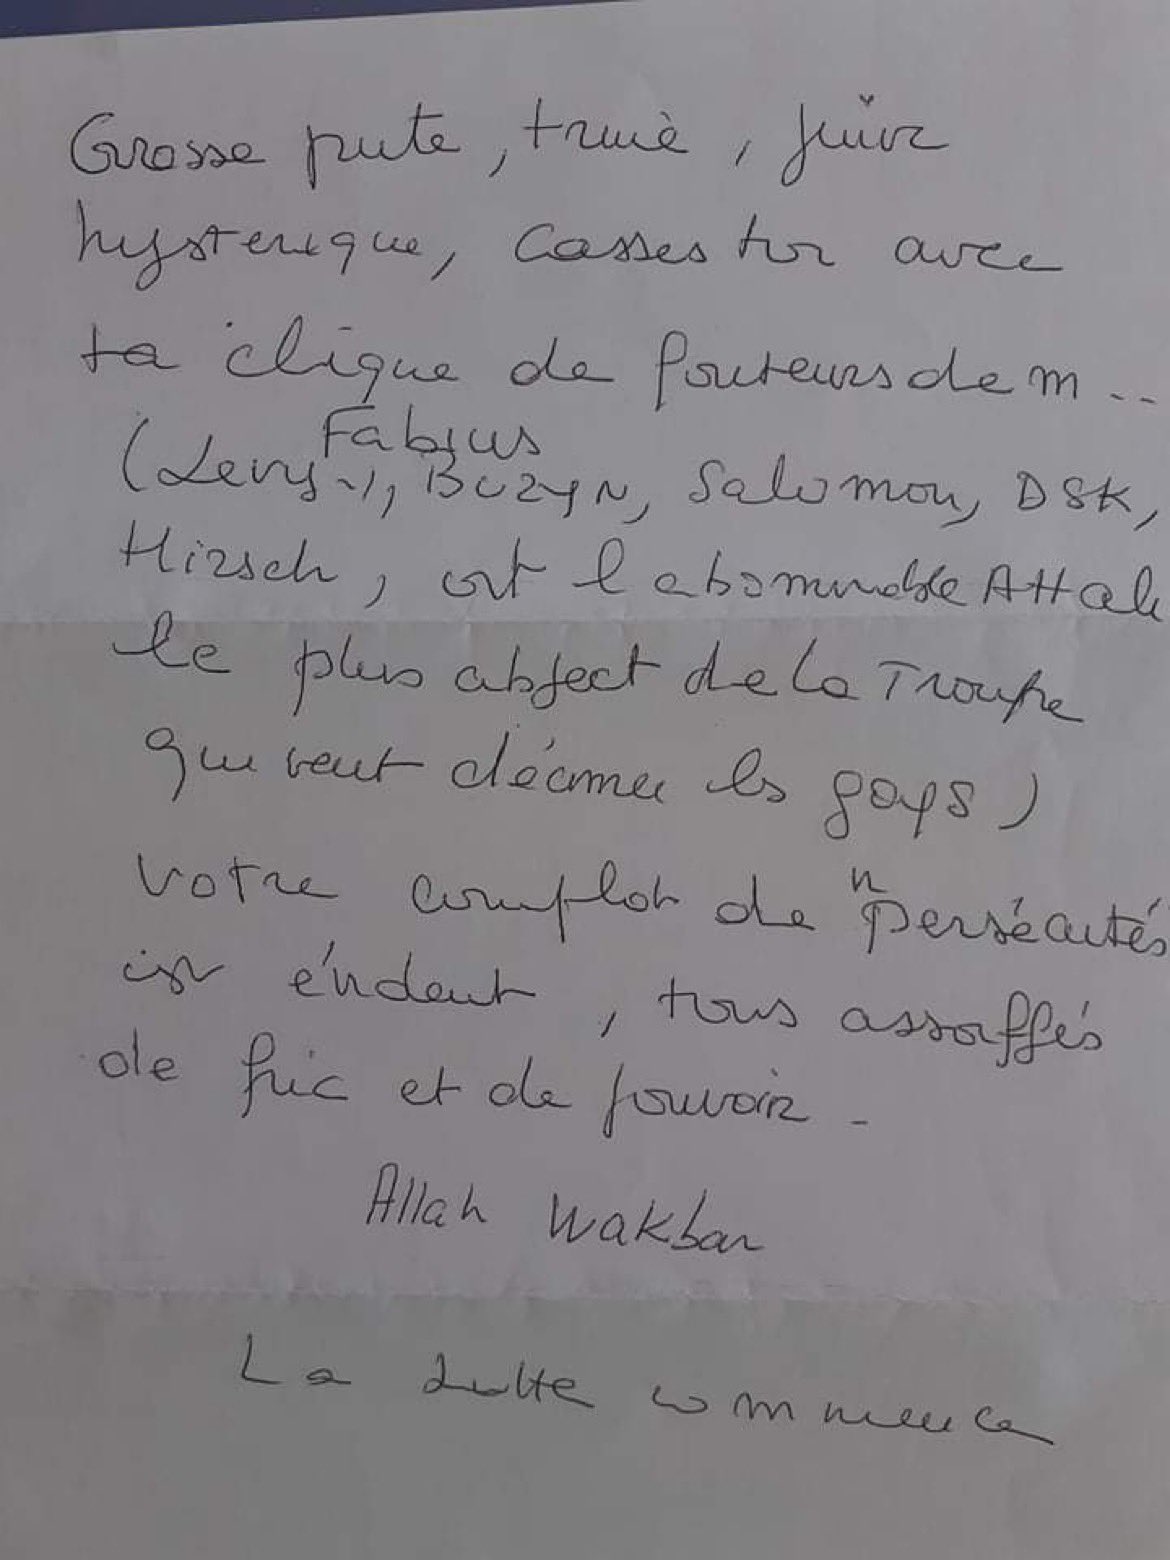 Grosse pute, truiè, juive
hysterique, casses toi avec
ta clique de fouteurs de m..
Fabius
(Levy, BUZYN, Salomon, DSK,
Hirsch, et l abominable Attali
le plus abject de la Troupe
qui veut décimer les goys)
votre complot de "persécutés"
est évident, tous assoffés
de fric et de pouvoir -
Allah Wakbar
La Lutte commence